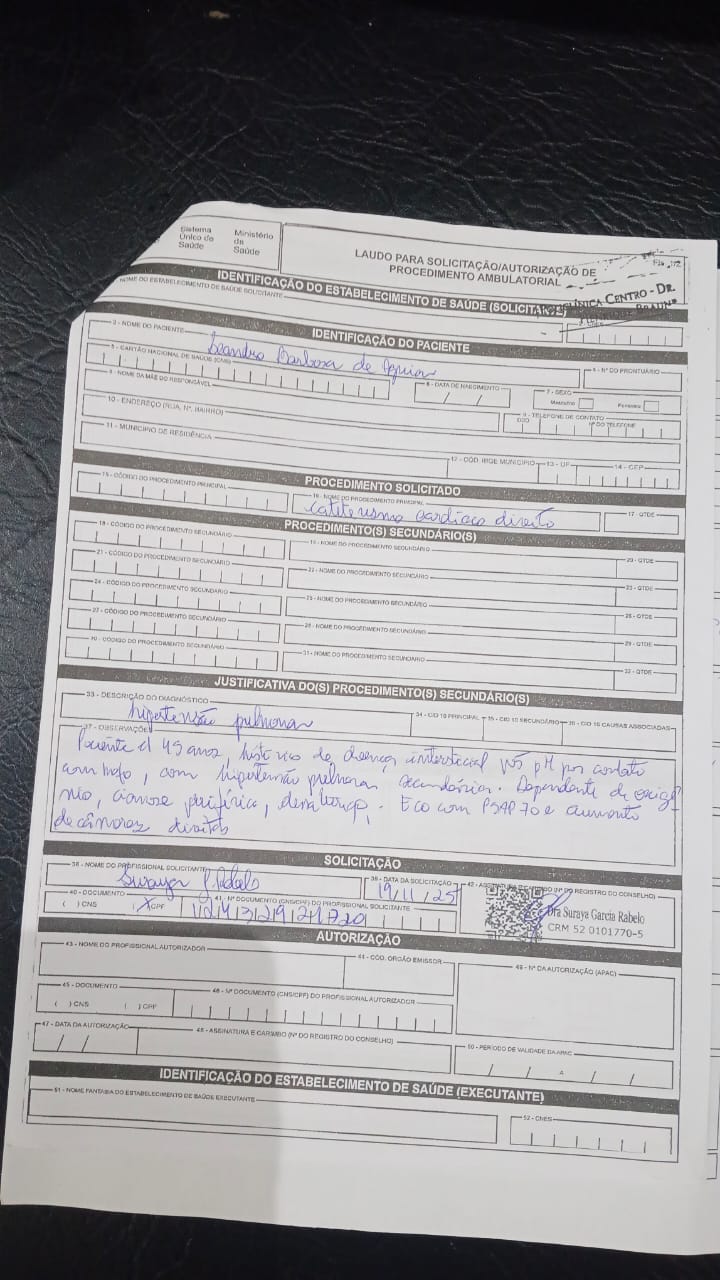 Sistema Único de Saúde
Ministério da Saúde
LAUDO PARA SOLICITAÇÃO/AUTORIZAÇÃO DE PROCEDIMENTO AMBULATORIAL
CLÍNICA CENTRO - DR.
IDENTIFICAÇÃO DO ESTABELECIMENTO DE SAÚDE (SOLICITANTE)
NOME DO ESTABELECIMENTO DE SAÚDE SOLICITANTE
IDENTIFICAÇÃO DO PACIENTE
3 - NOME DO PACIENTE
Leandro Barbosa de Aguiar
4 - Nº DO PRONTUÁRIO
5 - CARTÃO NACIONAL DE SAÚDE (CNS)
6 - DATA DE NASCIMENTO
7 - SEXO
Masculino
Feminino
8 - NOME DA MÃE OU RESPONSÁVEL
9 - TELEFONE DE CONTATO
DDD
Nº DO TELEFONE
10 - ENDEREÇO (RUA, Nº, BAIRRO)
11 - MUNICÍPIO DE RESIDÊNCIA
12 - CÓD. IBGE MUNICÍPIO
13 - UF
14 - CEP
PROCEDIMENTO SOLICITADO
15 - CÓDIGO DO PROCEDIMENTO PRINCIPAL
16 - NOME DO PROCEDIMENTO PRINCIPAL
Cateterismo cardíaco direito
17 - QTDE
PROCEDIMENTO(S) SECUNDÁRIO(S)
18 - CÓDIGO DO PROCEDIMENTO SECUNDÁRIO
19 - NOME DO PROCEDIMENTO SECUNDÁRIO
20 - QTDE
21 - CÓDIGO DO PROCEDIMENTO SECUNDÁRIO
22 - NOME DO PROCEDIMENTO SECUNDÁRIO
23 - QTDE
24 - CÓDIGO DO PROCEDIMENTO SECUNDÁRIO
25 - NOME DO PROCEDIMENTO SECUNDÁRIO
26 - QTDE
27 - CÓDIGO DO PROCEDIMENTO SECUNDÁRIO
28 - NOME DO PROCEDIMENTO SECUNDÁRIO
29 - QTDE
30 - CÓDIGO DO PROCEDIMENTO SECUNDÁRIO
31 - NOME DO PROCEDIMENTO SECUNDÁRIO
32 - QTDE
JUSTIFICATIVA DO(S) PROCEDIMENTO(S) SECUNDÁRIO(S)
33 - DESCRIÇÃO DO DIAGNÓSTICO
hipertensão pulmonar
34 - CID 10 PRINCIPAL
35 - CID 10 SECUNDÁRIO
36 - CID 10 CAUSAS ASSOCIADAS
37 - OBSERVAÇÕES
Paciente 45 anos, histórico de doença intersticial por contato
com mofo, com hipertensão pulmonar secundária. Dependente de oxigê-
nio, cianose periférica, . Eco com PSAP 70 e aumento
de câmaras direitas
SOLICITAÇÃO
38 - NOME DO PROFISSIONAL SOLICITANTE
Suraya G Rabelo
39 - DATA DA SOLICITAÇÃO
19/11/25
42 - ASSINATURA E CARIMBO (Nº DO REGISTRO DO CONSELHO)
Dra Suraya Garcia Rabelo
CRM 52 0101770-5
40 - DOCUMENTO
( ) CNS (X) CPF
41 - Nº DOCUMENTO (CNS/CPF) DO PROFISSIONAL SOLICITANTE
AUTORIZAÇÃO
43 - NOME DO PROFISSIONAL AUTORIZADOR
44 - CÓD. ORGÃO EMISSOR
49 - Nº DA AUTORIZAÇÃO (APAC)
45 - DOCUMENTO
( ) CNS ( ) CPF
46 - Nº DOCUMENTO (CNS/CPF) DO PROFISSIONAL AUTORIZADOR
47 - DATA DA AUTORIZAÇÃO
48 - ASSINATURA E CARIMBO (Nº DO REGISTRO DO CONSELHO)
50 - PERÍODO DE VALIDADE DA APAC
/ / A / /
IDENTIFICAÇÃO DO ESTABELECIMENTO DE SAÚDE (EXECUTANTE)
51 - NOME FANTASIA DO ESTABELECIMENTO DE SAÚDE EXECUTANTE
52 - CNES